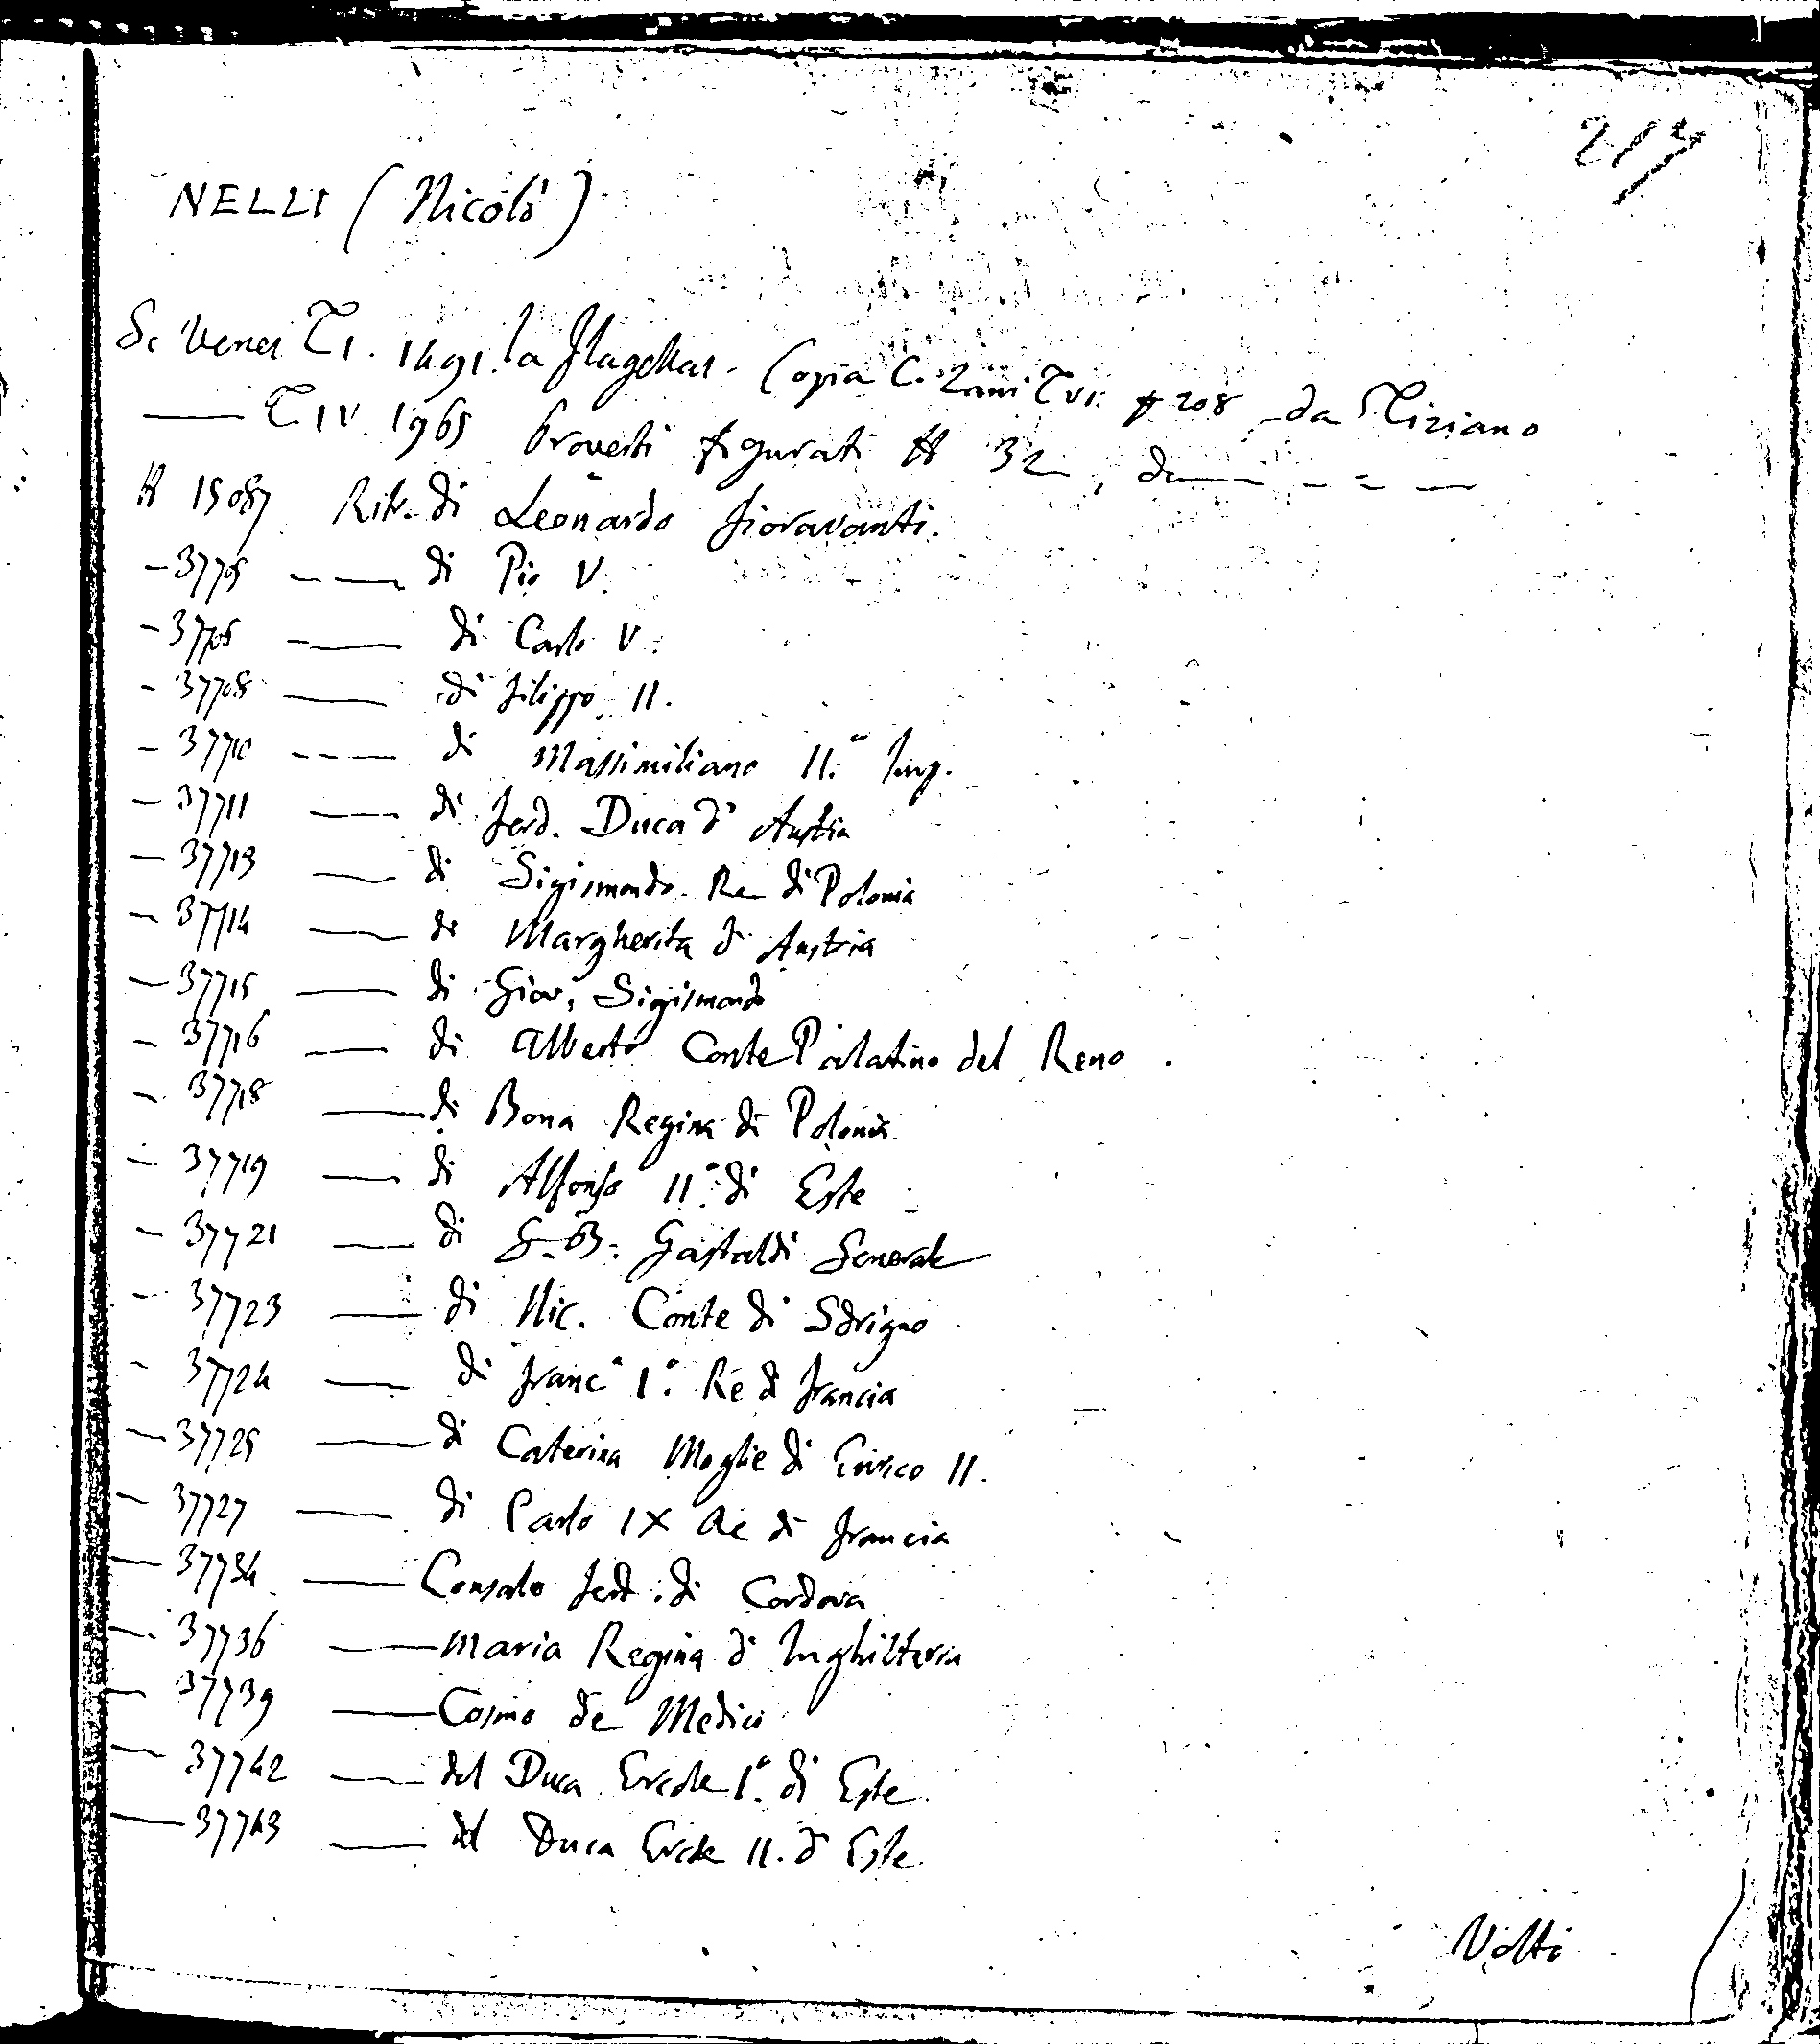 217
NELLI (Nicolò)
Sc Venez T I. 1491. la Flagellaz. Copia C. Zani T VI. # 208 da Tiziano
—— T IV. 1965 Proverbi figurati # 32, da — — — —
# 15087 Ritr. di Leonardo Fioravanti.
— 37705 —— di Pio V.
- 37706 —— di Carlo V.
- 37708 —— di Filippo II.
- 37710 —— di Massimiliano II.° Imp.
— 37711 —— di Ferd. Duca d' Austria
— 37713 —— di Sigismondo Re di Polonia
— 37714 —— di Margherita d' Austria
— 37715 —— di Giov. Sigismondo
- 37716 —— di Alberto Conte Palatino del Reno.
- 37718 —— di Bona Regina di Polonia
- 37719 —— di Alfonso II.° di Este
- 37721 —— di G. B. Gastaldi Generale
- 37723 —— di Nic. Conte di Sdrigno
- 37724 —— di Franc° I.° Re d Francia
— 37725 —— di Caterina Moglie di Enrico II.
— 37727 —— di Carlo IX Re di Francia
— 37734 —— Consalvo Ferd. di Cordova
— 37736 —— Maria Regina d' Inghilterra
— 37739 —— Cosmo de Medici
— 37742 —— del Duca Ercole I.° di Este
— 37743 —— del Duca Ercole II. d' Este
Volti